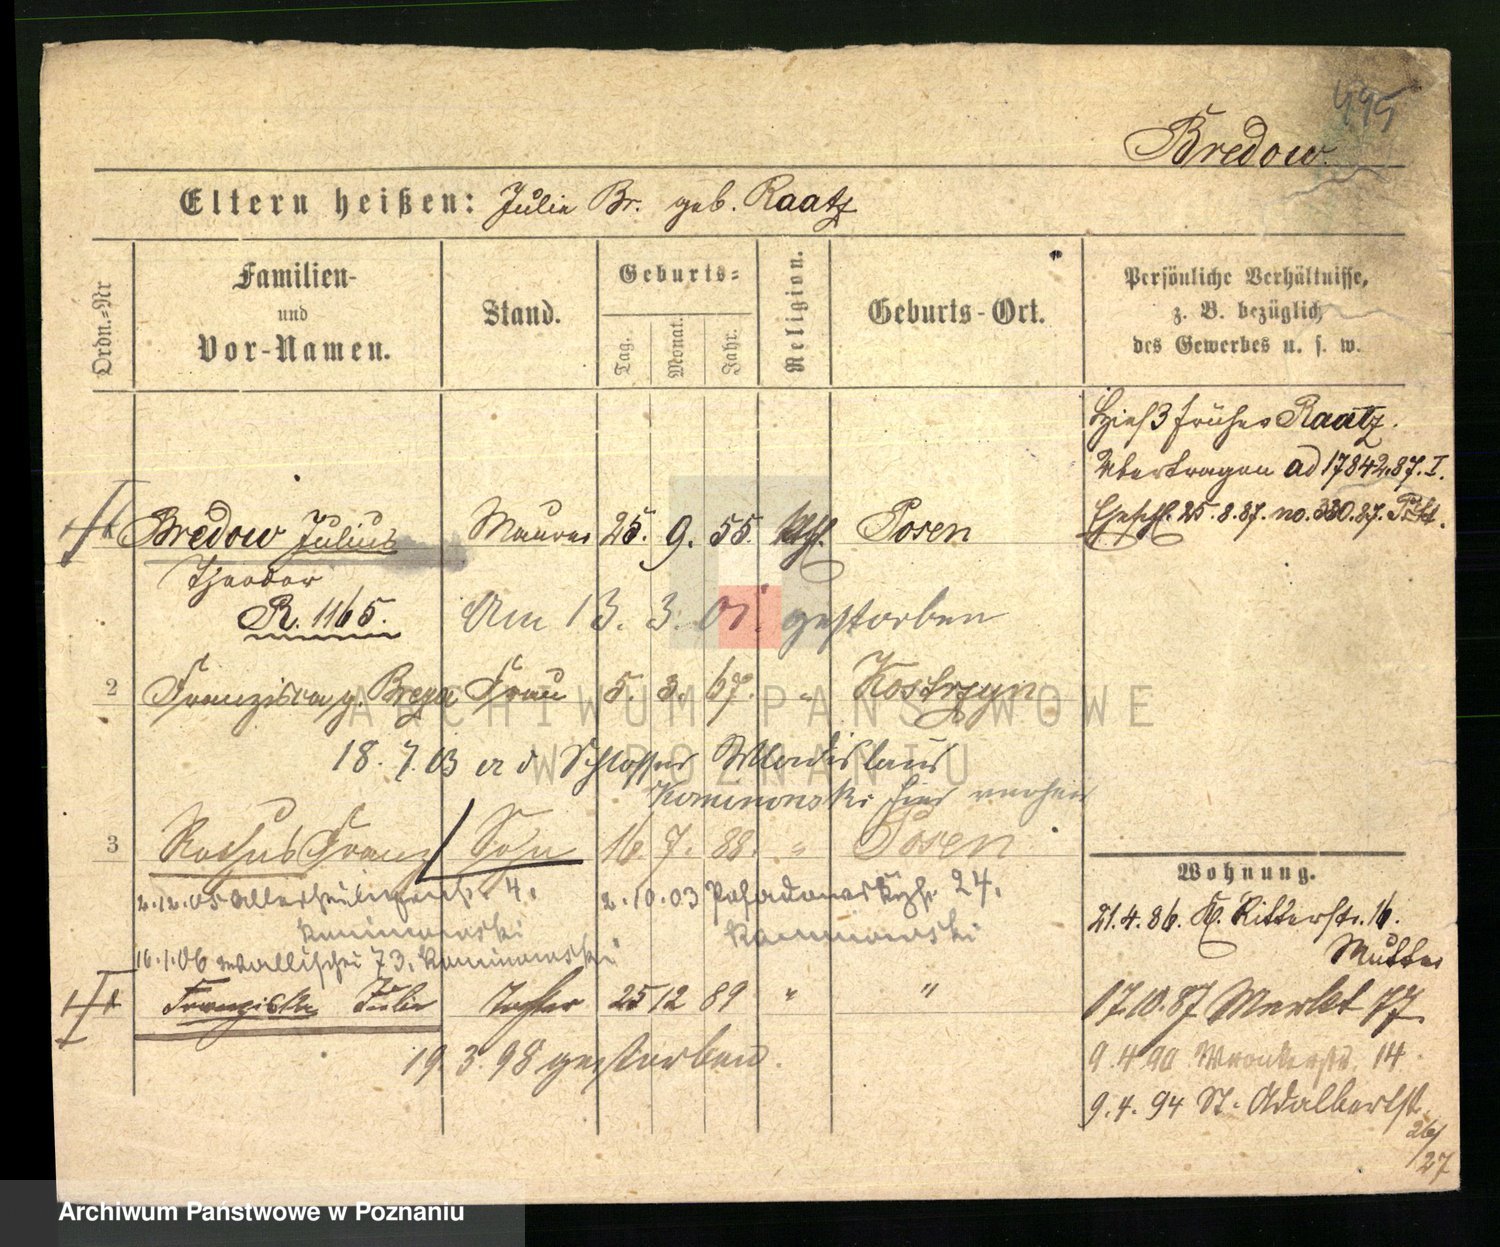 495
Bredow.
Eltern heißen: Julie Br. geb. Raatz
Ordn.=Nr
Familien-
und
Vor-Namen.
Stand.
Geburts=
Tag.
Monat.
Jahr.
Religion.
Geburts-Ort.
Persönliche Verhältnisse,
z. B. bezüglich
des Gewerbes u. s. w.
Hieß früher Raatz.
Übertragen ad 17842.87. I.
Eheschl. 25.8.87. no. 330.87.
Bredow Julius Maurer 25. 9. 55. kth. Posen
Theodor
R. 1165.
Am 13. 3. 01. gestorben
2 Franziska g. Frau 5. 3. 67. " Kostrzyn
18. 7. 03 a d Schlosser Wladislaus
Kaminonski hier
3 Franz Sohn 16 7. 88. " Posen
2.12.05 Allerheiligenstr. 4.
2.10.03 24.
Kaminonski
Kaminonski
16.1.06 Wallischei 73. Kaminonski
Franziska Julie Tochter 25 12 89 " "
19. 3. 98 gestorben.
Wohnung.
21.4.86. Kl. Ritterstr. 16.
Mutter
17.10.87 Markt 77.
9.4.90 Wronkerstr. 14.
9. 4. 94 St. Adalbertst.
26/27
ARCHIWUM PAŃSTWOWE
W POZNANIU
Archiwum Państwowe w Poznaniu